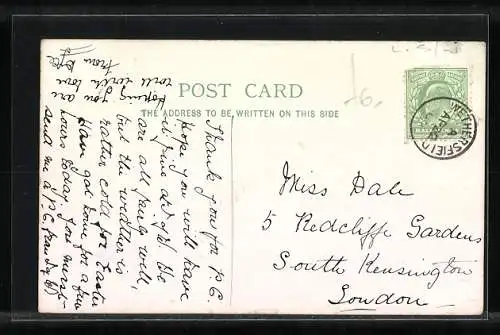 POST CARD
THE ADDRESS TO BE WRITTEN ON THIS SIDE
WETHERSFIELD
Miss Dale
5 Redcliffe Gardens
South Kensington
London
Thank you for P.C.
hope you will have
a time
are all fairly well,
but the weather is
rather cold for Easter
Ham got home for a few
hours today. You must
send me a P.C.
Hoping you are
well with love
from